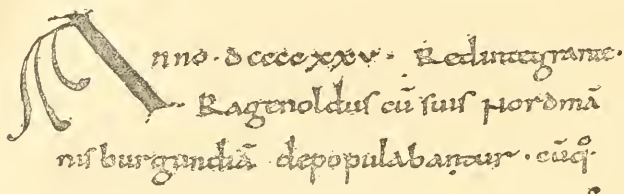 Anno · dccccxxv · Redintegrante ·
Ragenoldus cū suis Nordmā
nis burgundiā depopulabantur · cūq̊